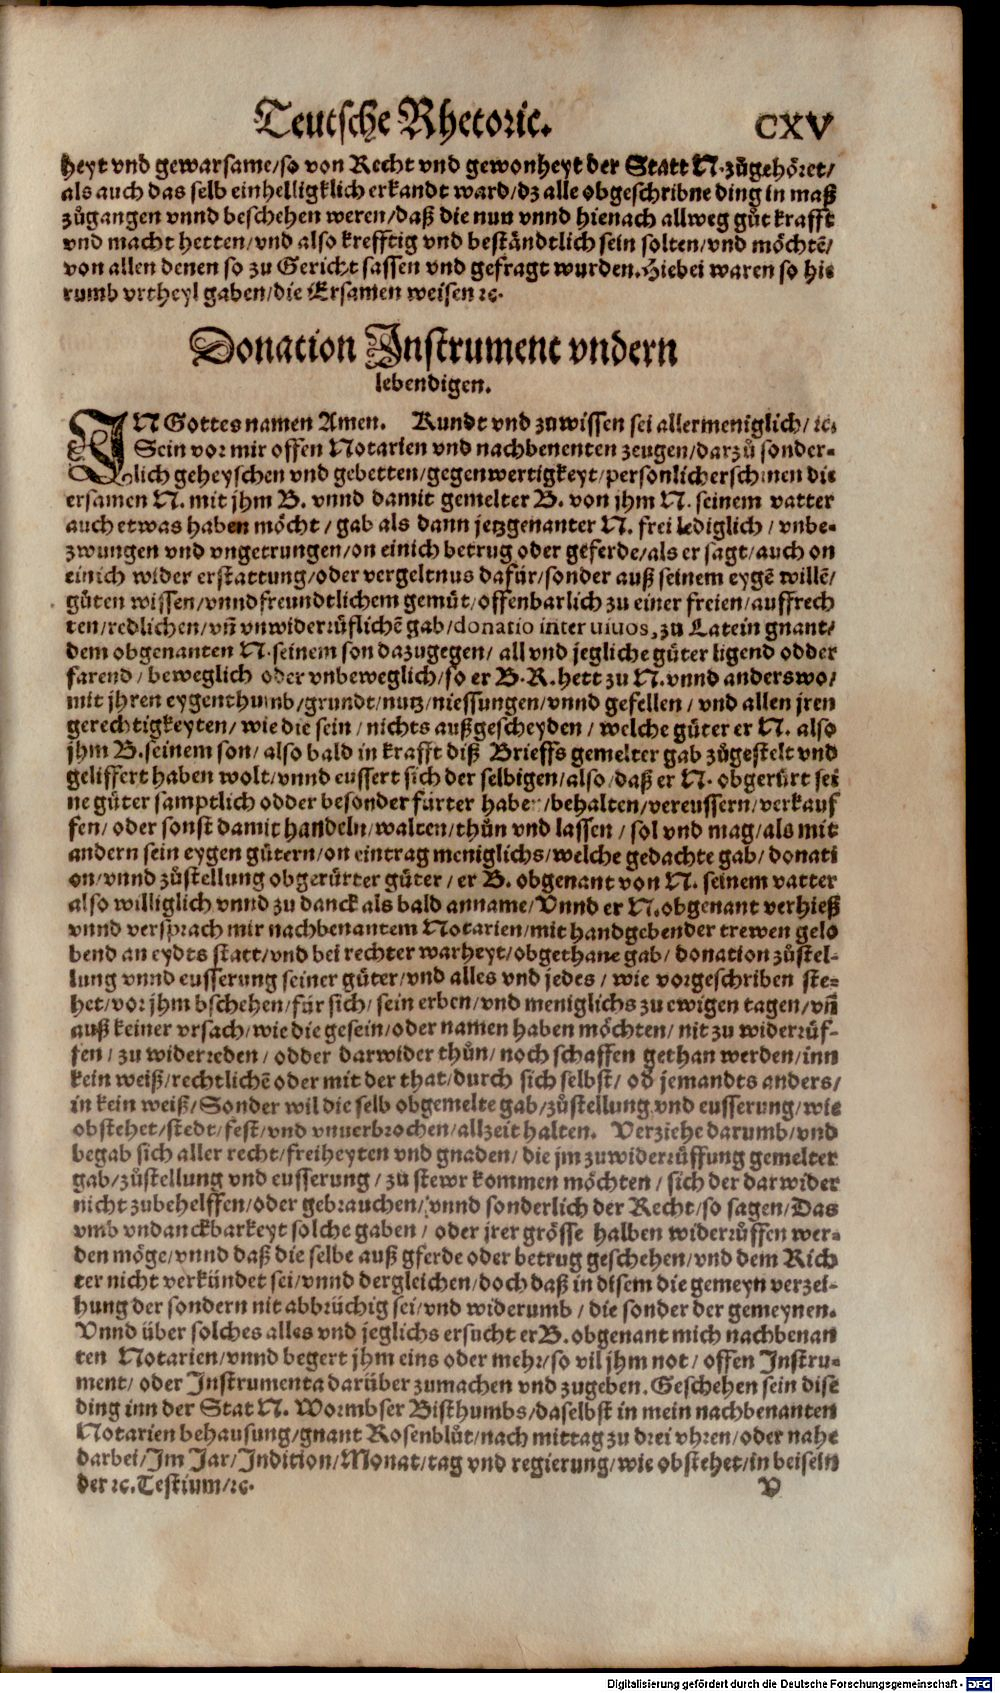 Teutsche Rhetoric. CXV
heyt vnd gewarsame/so von Recht vnd gewonheyt der Statt N. zůgehöret/
als auch das selb einhelligklich erkandt ward/dz alle obgeschribne ding in maß
zůgangen vnnd beschehen weren/daß die nun vnnd hienach allweg gůt krafft
vnd macht hetten/vnd also krefftig vnd beständtlich sein solten/vnd möchtē/
von allen denen so zu Gericht sassen vnd gefragt wurden. Hiebei waren so hie
rumb vrtheyl gaben/die Ersamen weisen ꝛc.
Donation Instrument vndern
lebendigen.
IN Gottes namen Amen. Kundt vnd zuwissen sei allermeniglich/ ꝛc.
Sein vor mir offen Notarien vnd nachbenenten zeugen/darzů sonder-
lich geheyschen vnd gebetten/gegenwertigkeyt/personlich erschinen die
ersamen N. mit jhm B. vnnd damit gemelter B. von jhm N. seinem vatter
auch etwas haben möcht/ gab als dann jetzgenanter N. frei lediglich / vnbe-
zwungen vnd vngetrungen/on einich betrug oder geferde/als er sagt/auch on
einich wider erstattung/oder vergeltnus dafür/sonder auß seinem eygē willē/
gůten wissen/vnnd freundtlichem gemüt/offenbarlich zu einer freien/auffrech
ten/redlichen/vñ vnwiderrůflichē gab/donatio inter uiuos, zu Latein gnant/
dem obgenanten N. seinem son dazugegen/ all vnd jegliche güter ligend odder
farend/ beweglich oder vnbeweglich/so er B. R. hett zu N. vnnd anderswo/
mit jhren eygenthumb/grundt/nutz/niessungen/vnnd gefellen/ vnd allen jren
gerechtigkeyten/ wie die sein / nichts außgescheyden / welche güter er N. also
jhm B. seinem son/ also bald in krafft diß Brieffs gemelter gab zůgestelt vnd
geliffert haben wolt/vnnd eussert sich der selbigen/also/daß er N. obgerürt sei
ne güter samptlich odder besonder fürter haben/behalten/vereussern/verkauf
fen/ oder sonst damit handeln/walten/thůn vnd lassen / sol vnd mag/als mit
andern sein eygen gütern/on eintrag meniglichs/welche gedachte gab/ donati
on/vnnd zůstellung obgerürter güter / er B. obgenant von N. seinem vatter
also williglich vnnd zu danck als bald anname/Vnnd er N. obgenant verhieß
vnnd versprach mir nachbenantem Notarien/mit handgebender trewen gelo
bend an eydts statt/vnd bei rechter warheyt/obgethane gab/ donation zůstel-
lung vnnd eusserung seiner güter/vnd alles vnd jedes/ wie vorgeschriben ste-
het/vor jhm bschehen/für sich/ sein erben/vnd meniglichs zu ewigen tagen/vñ
auß keiner vrsach/wie die gesein/oder namen haben möchten/ nit zu widerrůf-
fen/ zu widerreden / odder darwider thůn/ noch schaffen gethan werden/inn
kein weiß/rechtlichē oder mit der that/durch sich selbst/ od jemandts anders/
in kein weiß/Sonder wil die selb obgemelte gab/zůstellung vnd eusserung/wie
obstehet/stedt/fest/vnd vnuerbrochen/allzeit halten. Verziehe darumb/vnd
begab sich aller recht/freiheyten vnd gnaden/ die jm zuwiderrůffung gemelter
gab/zůstellung vnd eusserung / zu stewr kommen möchten / sich der darwider
nicht zubehelffen/oder gebrauchen/vnnd sonderlich der Recht/so sagen/Das
vmb vndanckbarkeyt solche gaben / oder jrer grösse halben widerrůffen wer-
den möge/vnnd daß die selbe auß gferde oder betrug geschehen/vnd dem Rich
ter nicht verkündet sei/vnnd dergleichen/doch daß in disem die gemeyn verzei-
hung der sondern nit abbrüchig sei/vnd widerumb / die sonder der gemeynen.
Vnnd über solches alles vnd jeglichs ersucht er B. obgenant mich nachbenan
ten Notarien/vnnd begert jhm eins oder mehr/so vil jhm not/ offen Instru-
ment/ oder Instrumenta darüber zumachen vnd zugeben. Geschehen sein dise
ding inn der Stat N. Wormbser Bisthumbs/daselbst in mein nachbenanten
Notarien behausung/gnant Rosenblůt/nach mittag zu drei vhren/oder nahe
darbei/Im Jar/Indition/Monat/tag vnd regierung/wie obstehet/in beiseln
der ꝛc. Testium/ꝛc. V
Digitalisierung gefördert durch die Deutsche Forschungsgemeinschaft - DFG